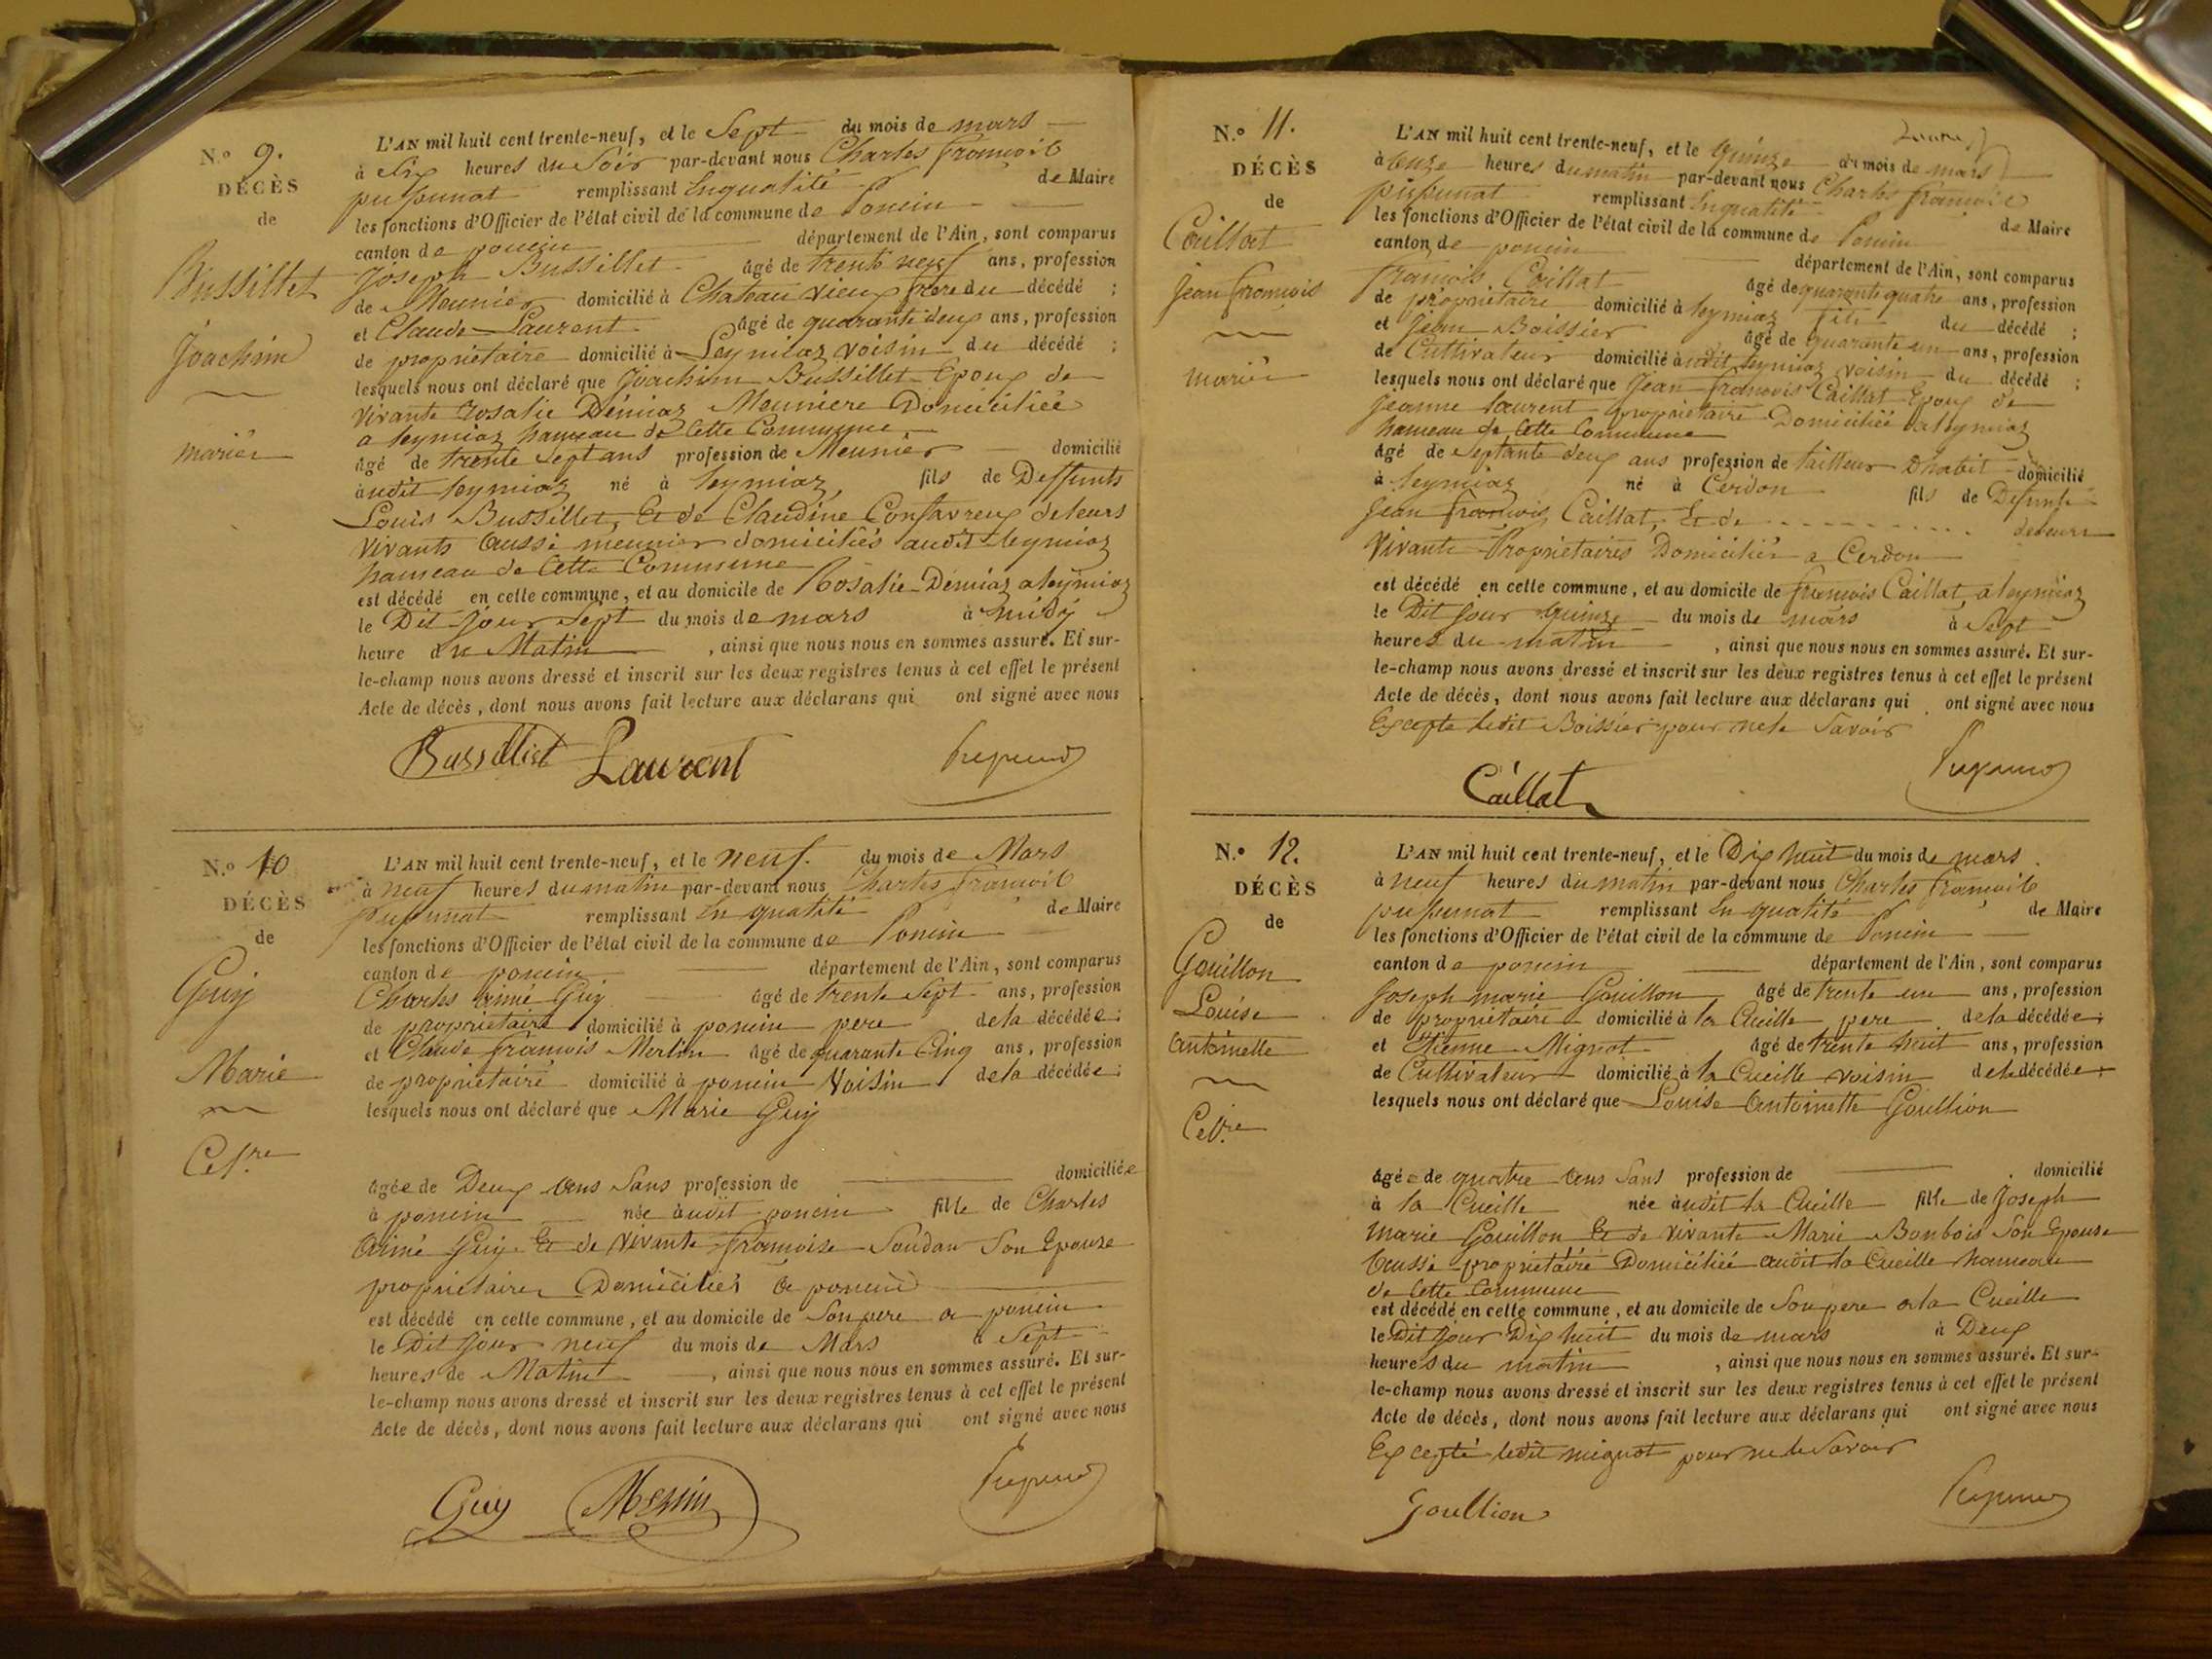 N.° 9.
DÉCÈS
de
Bussillet
Joachim
marié
L'AN mil huit cent trente-neuf, et le Sept du mois de mars
à Six heures du Soir par-devant nous Charles françois
pupunat remplissant En qualité de Maire
les fonctions d'Officier de l'état civil de la commune de Poncin
canton de poncin département de l'Ain, sont comparus
Joseph Bussillet âgé de trente neuf ans, profession
de Meunier domicilié à Chateau vieux frere du décédé ;
et Claude Laurent âgé de quarante deux ans, profession
de propriétaire domicilié à Leymiaz voisin du décédé ;
lesquels nous ont déclaré que Joachim Bussillet Epoux de
vivante rosalie Démiaz Meuniere Domiciliée
a leymiaz hameau de Cette Commune
âgé de trente Sept ans profession de Meunier domicilié
audit leymiaz né à leymiaz fils de Deffunts
Louis Bussillet, Et de Claudine Confavreux de leurs
vivants aussi meunier domiciliés audit leymiaz
hameau de Cette Commune
est décédé en celle commune, et au domicile de Rosalie Démiaz a leymiaz
le Dit Jour Sept du mois de mars à midy
heure du Matin , ainsi que nous nous en sommes assuré. Et sur-
le-champ nous avons dressé et inscrit sur les deux registres tenus à cet effet le présent
Acte de décès, dont nous avons fait lecture aux déclarans qui ont signé avec nous
Bussillet Laurent Pupunat
N.° 10
DÉCÈS
de
Guy
Marie
Cel.re
L'AN mil huit cent trente-neuf, et le neuf du mois de Mars
à neuf heures du matin par-devant nous Charles françois
pupunat remplissant En qualité de Maire
les fonctions d'Officier de l'état civil de la commune de Poncin
canton de poncin département de l'Ain, sont comparus
Charles aimé Guy âgé de trente Sept ans, profession
de propriétaire domicilié à poncin pere de la décédée ;
et Claude françois Merlin âgé de quarante Cinq ans, profession
de propriétaire domicilié à poncin Voisin de la décédée ;
lesquels nous ont déclaré que Marie Guy
âgée de Deux ans Sans profession de domiciliée
à poncin née audit poncin fille de Charles
aimé Guy Et de vivante françoise Soudan Son Epouse
propriétaires Domiciliés a poncin
est décédé en celle commune, et au domicile de Son pere a poncin
le Dit Jour neuf du mois de Mars à Sept
heures de Matin , ainsi que nous nous en sommes assuré. Et sur-
le-champ nous avons dressé et inscrit sur les deux registres tenus à cet effet le présent
Acte de décès, dont nous avons fait lecture aux déclarans qui ont signé avec nous
Guy Merlin Pupunat
N.° 11.
DÉCÈS
de
Caillat
Jean françois
marié
L'AN mil huit cent trente-neuf, et le quinze du mois de mars
à onze heures du matin par-devant nous Charles françois
pupunat remplissant En qualité de Maire
les fonctions d'Officier de l'état civil de la commune de Poncin
canton de poncin département de l'Ain, sont comparus
françois Caillat âgé de quarante quatre ans, profession
de propriétaire domicilié à leymiaz fils du décédé ;
et Jean Boissier âgé de quarante un ans, profession
de Cultivateur domicilié à udit leymiaz voisin du décédé ;
lesquels nous ont déclaré que Jean françois Caillat Epoux de
Jeanne laurent propriétaire Domiciliée a leymiaz
hameau de Cette Commune
âgé de Septante deux ans profession de tailleur D'habit domicilié
à leymiaz né à Cerdon fils de Défunts
Jean françois Caillat, Et de .......... de leurs
vivants Propriétaires Domiciliés a Cerdon
est décédé en celle commune, et au domicile de françois Caillat a leymiaz
le Dit Jour quinze du mois de mars à Sept
heures du matin , ainsi que nous nous en sommes assuré. Et sur-
le-champ nous avons dressé et inscrit sur les deux registres tenus à cet effet le présent
Acte de décès, dont nous avons fait lecture aux déclarans qui ont signé avec nous
Excepté ledit Boissier pour ne le Savoir
Caillat Pupunat
N.° 12.
DÉCÈS
de
Gouillon
Louise
antoinette
Cel.re
L'AN mil huit cent trente-neuf, et le Dix huit du mois de mars
à neuf heures du matin par-devant nous Charles françois
pupunat remplissant En qualité de Maire
les fonctions d'Officier de l'état civil de la commune de Poncin
canton de poncin département de l'Ain, sont comparus
Joseph marie Gouillon âgé de trente un ans, profession
de propriétaire domicilié à la Cueille pere de la décédée ;
et Etienne Mignot âgé de trente huit ans, profession
de Cultivateur domicilié à la Cueille voisin de la décédée ;
lesquels nous ont déclaré que Louise antoinette Goullion
âgée de quatre ans Sans profession de domicilié
à la Cueille née audit la Cueille fille de Joseph
marie Gouillon Et de vivante Marie Bonbois Son Epouse
aussi propriétaire Domiciliée audit la Cueille hameau
de Cette Commune
est décédé en celle commune, et au domicile de Son pere a la Cueille
le Dit Jour Dix huit du mois de mars à Deux
heures du matin , ainsi que nous nous en sommes assuré. Et sur-
le-champ nous avons dressé et inscrit sur les deux registres tenus à cet effet le présent
Acte de décès, dont nous avons fait lecture aux déclarans qui ont signé avec nous
Excepté ledit mignot pour ne le Savoir
Goullion Pupunat